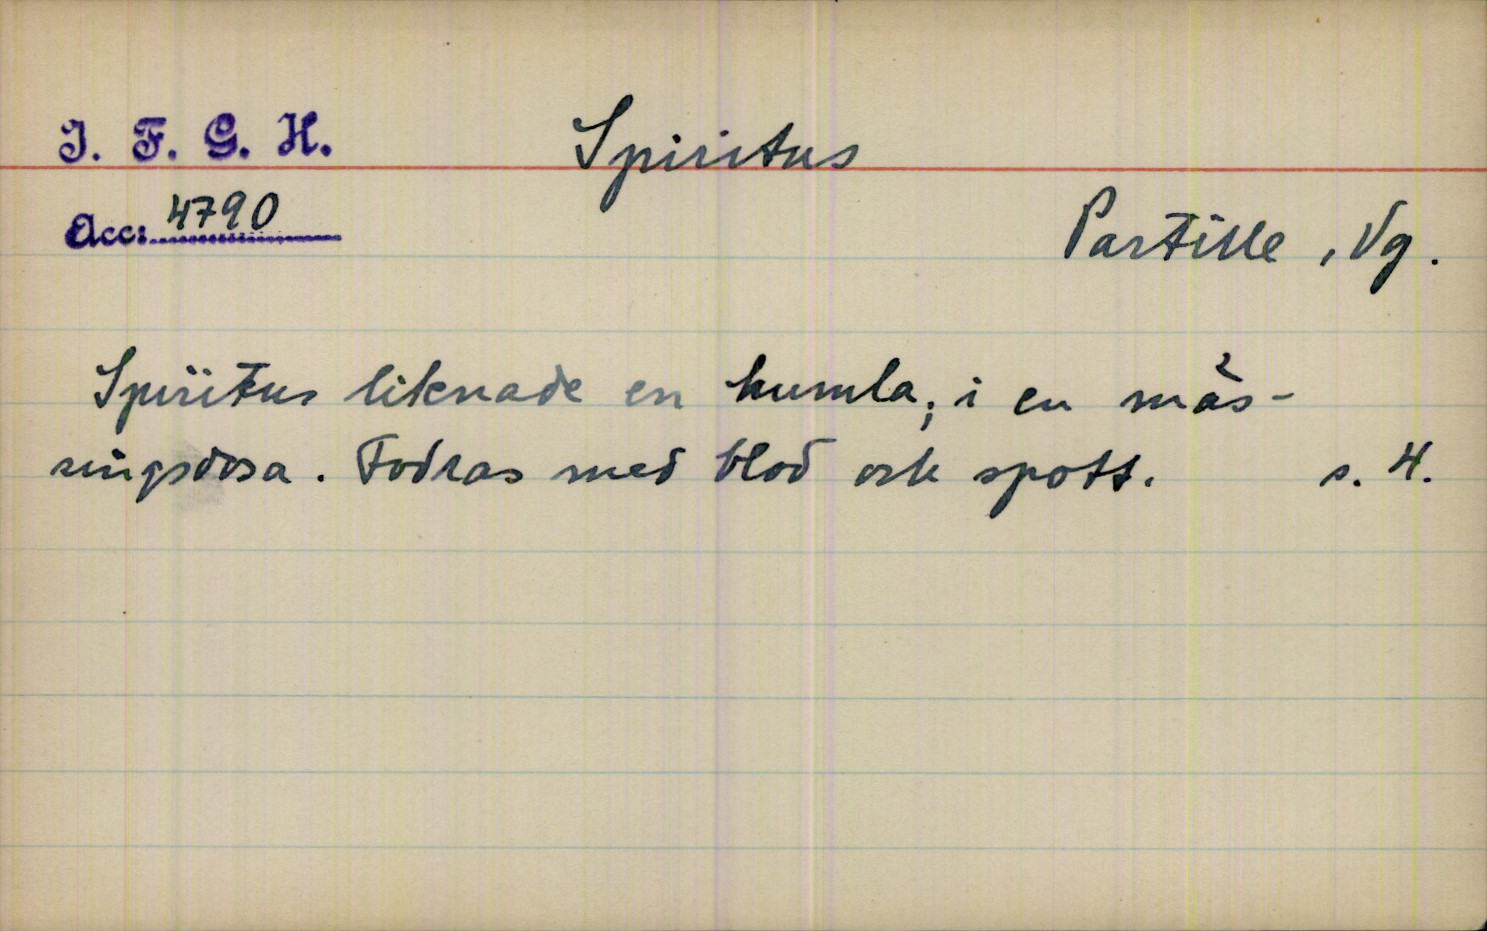 I. F. G. H.
Spiritus
Acc: 4790
Partille, Vg.
Spiritus liknade en humla; i en mäs-
singsdosa. Fodras med blod och spott. s. 4.